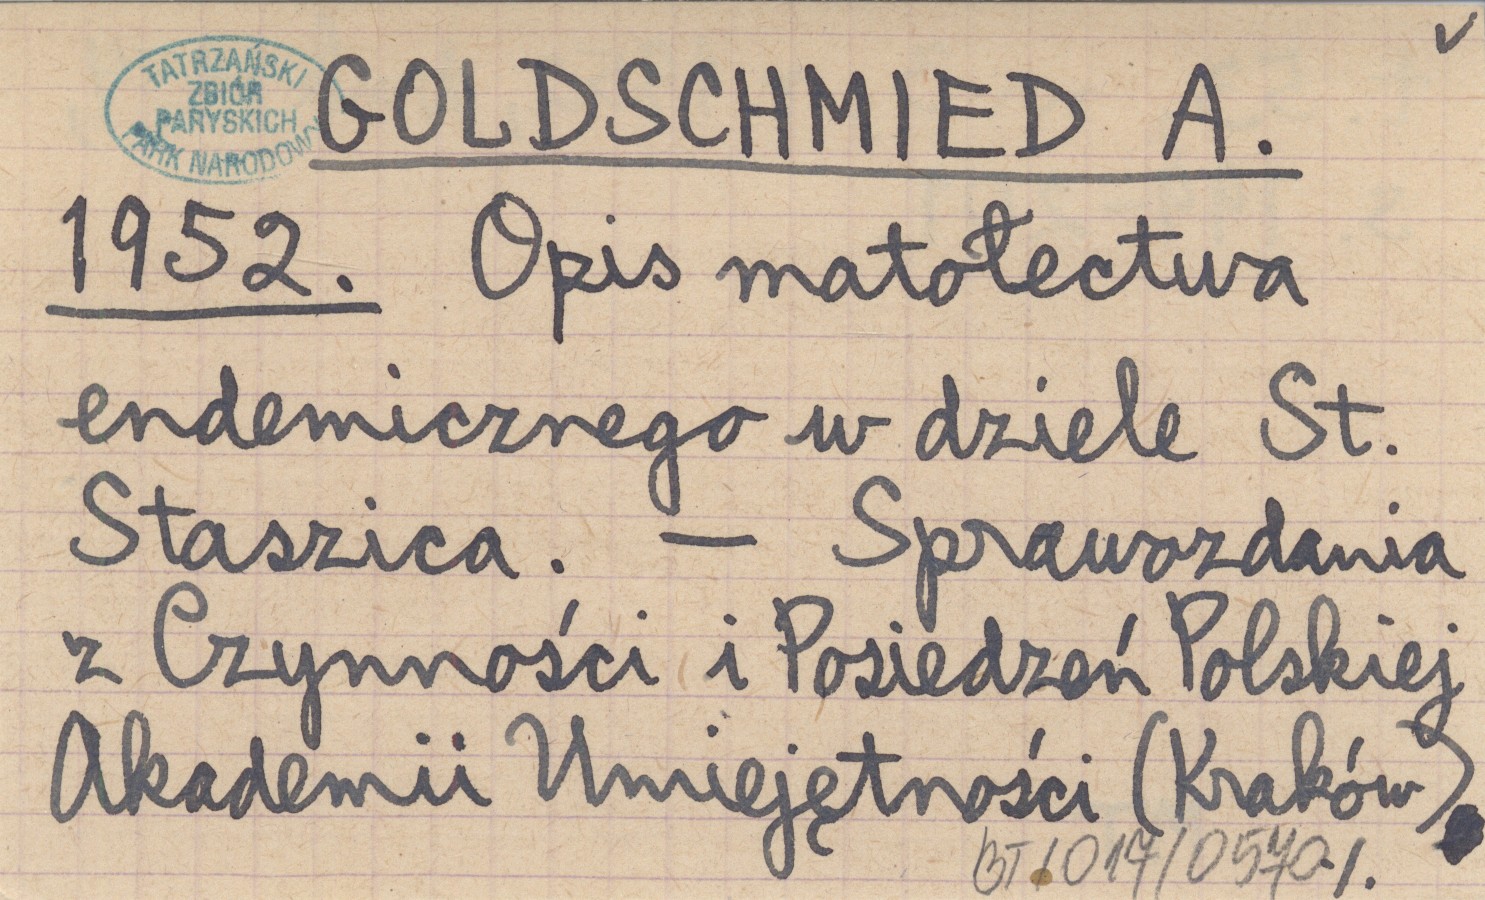 TATRZAŃSKI
ZBIÓR
PARYSKICH
PARK NARODOWY
GOLDSCHMIED A.
1952. Opis matołectwa
endemicznego w dziele St.
Staszica. — Sprawozdania
z Czynności i Posiedzeń Polskiej
Akademii Umiejętności (Kraków).
BT/017/0570/.